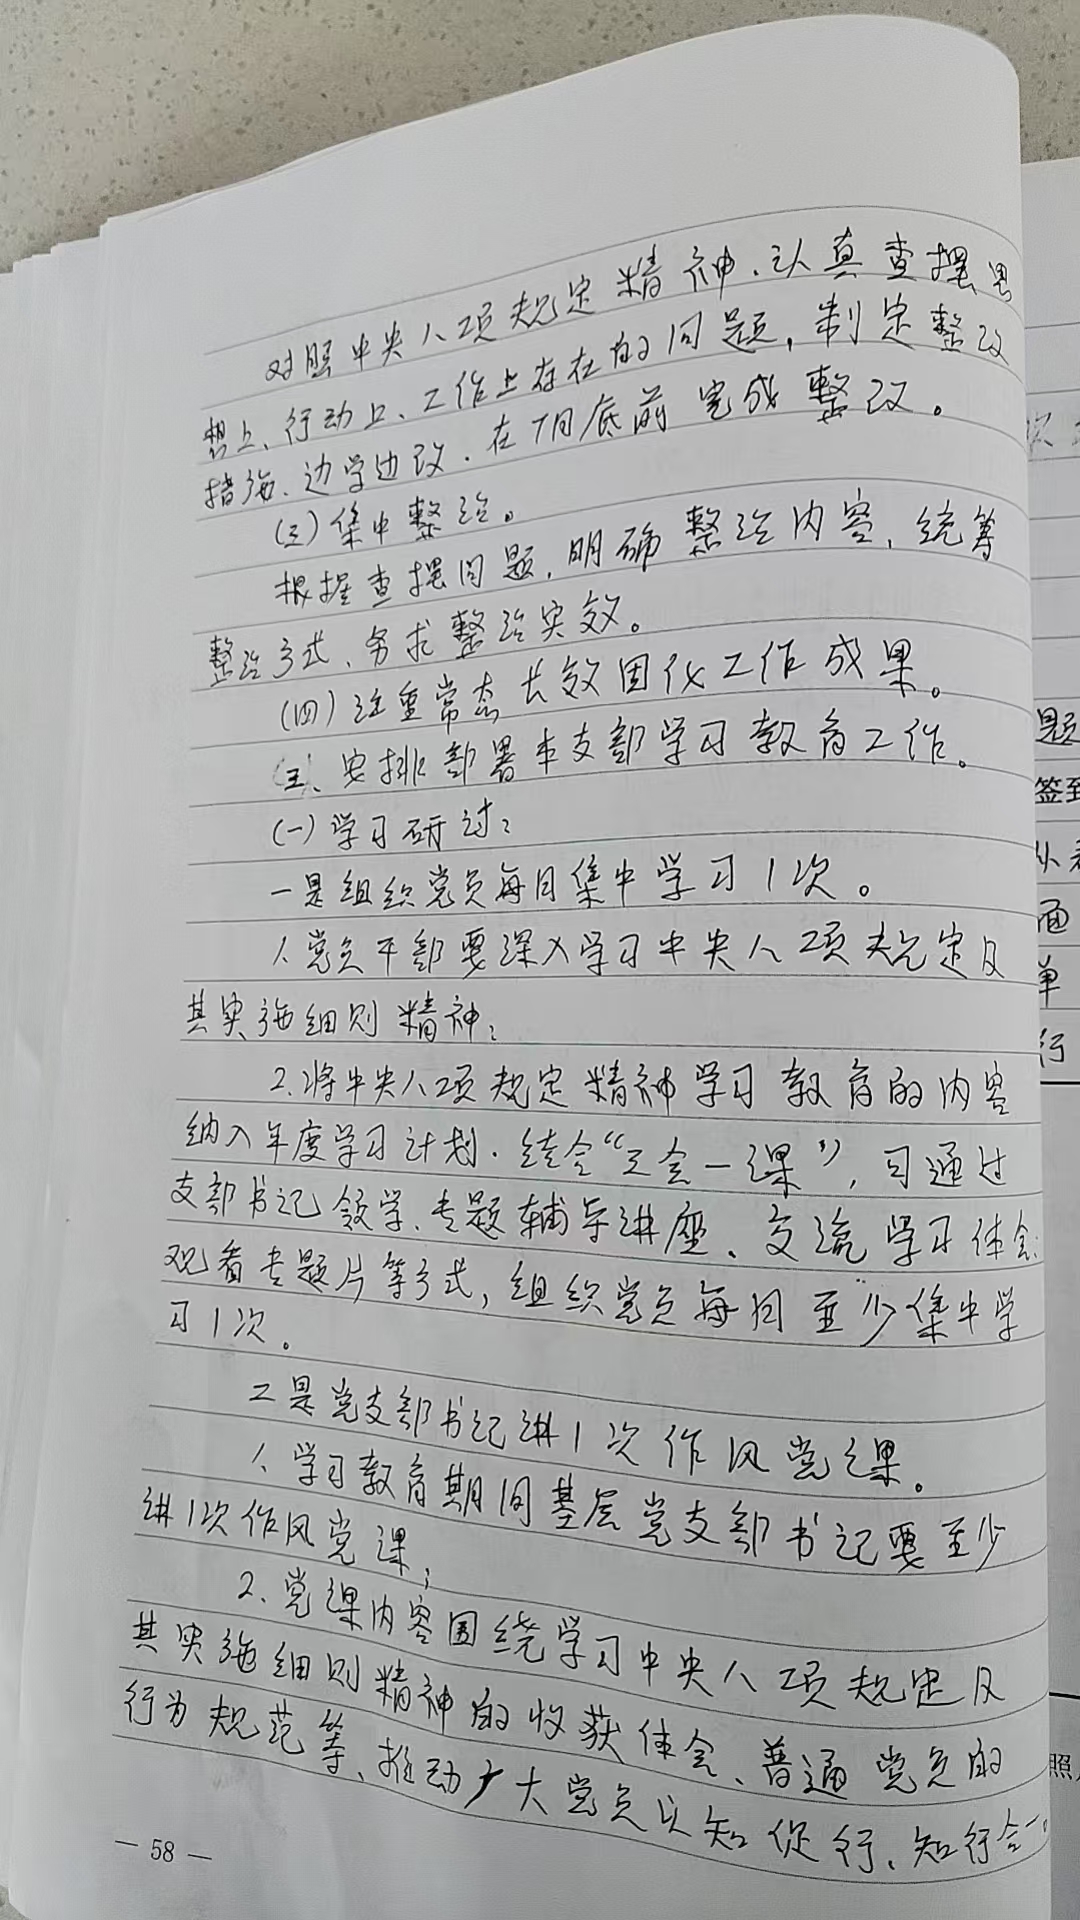 对照中央八项规定精神、认真查摆思
想上、行动上、工作上存在的问题，制定整改
措施、边学边改.在7月底前完成整改。
(三)集中整治。
根据查摆问题，明确整治内容，统筹
整治方式、务求整治实效。
(四)注重常态长效固化工作成果。
三、安排部署本支部学习教育工作。
(一)学习研讨：
一是组织党员每月集中学习1次。
1.党员干部要深入学习中央八项规定及
其实施细则精神；
2.将中央八项规定精神学习教育的内容
纳入年度学习计划.结合“三会一课”，可通过
支部书记领学、专题辅导讲座、交流学习体会
观看专题片等方式，组织党员每月至少集中学
习1次。
二是党支部书记讲1次作风党课。
1.学习教育期间基层党支部书记要至少
讲1次作风党课；
2.党课内容围绕学习中央八项规定及
其实施细则精神的收获体会、普通党员的
行为规范等、推动广大党员以知促行、知行合一。
— 58 —
题
签到
从
面
单
行
照